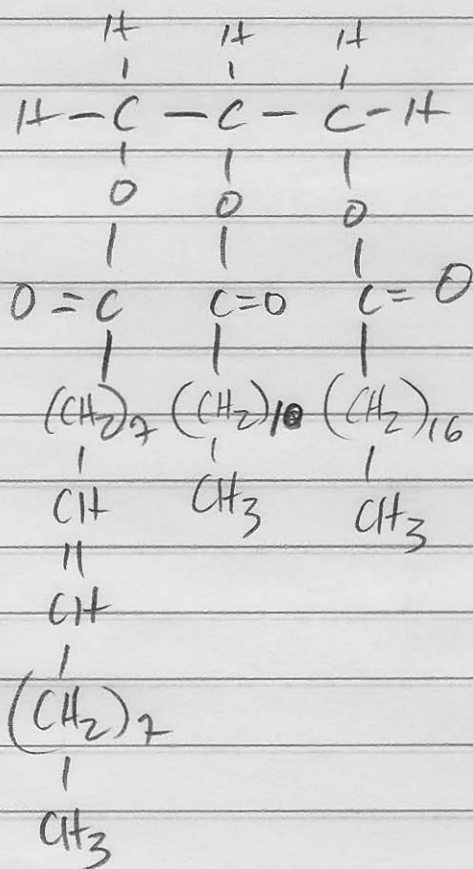 H H H
H - C - C - C - H
O O O
O = C C = O C = O
(CH2)7 (CH2)10 (CH2)16
CH CH3 CH3
CH
(CH2)7
CH3